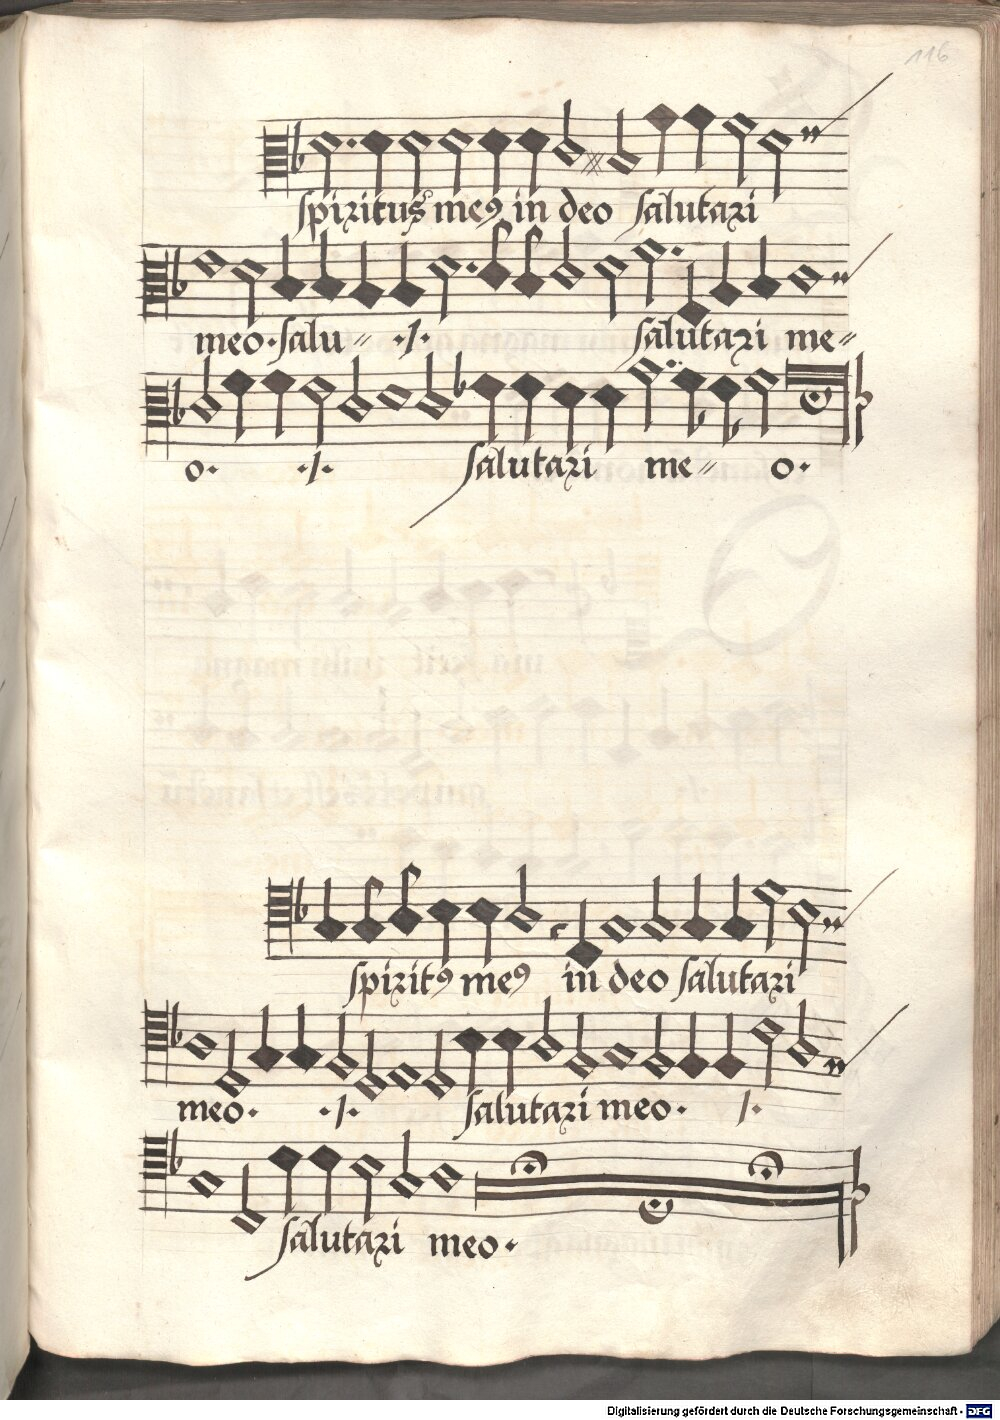 116
spiritus meꝰ in deo salutari
meo · salu〃 ·/· salutari me〃
o· ·/· salutari me〃 o·
spiritꝰ meꝰ in deo salutari
meo· ·/· salutari meo· /·
salutari meo·
Digitalisierung gefördert durch die Deutsche Forschungsgemeinschaft - DFG